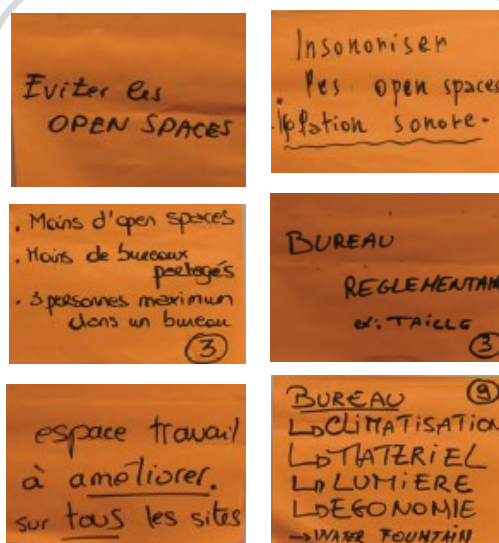 Eviter les
OPEN SPACES
Insonoriser
les open spaces
Isolation sonore.
. Moins d'open spaces
. Moins de bureaux
partagés
. 3 personnes maximum
dans un bureau
3
BUREAU
REGLEMENTAI
ex: TAILLE
3
espace travail
à améliorer.
sur tous les sites
BUREAU 9
↳CLIMATISATION
↳MATERIEL
↳LUMIERE
↳EGONOMIE
→WATER FOUNTAIN